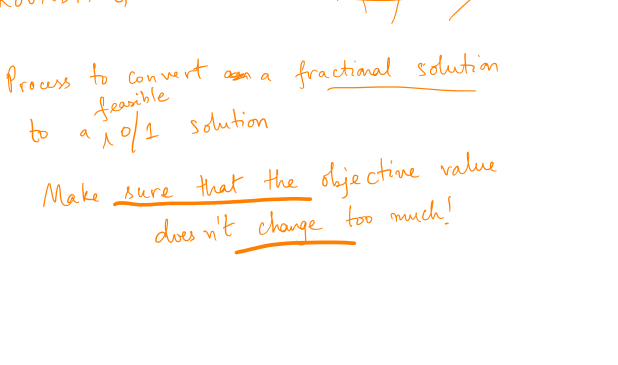 Process to convert a fractional solution
to a feasible 0/1 solution
Make sure that the objective value
doesn't change too much!